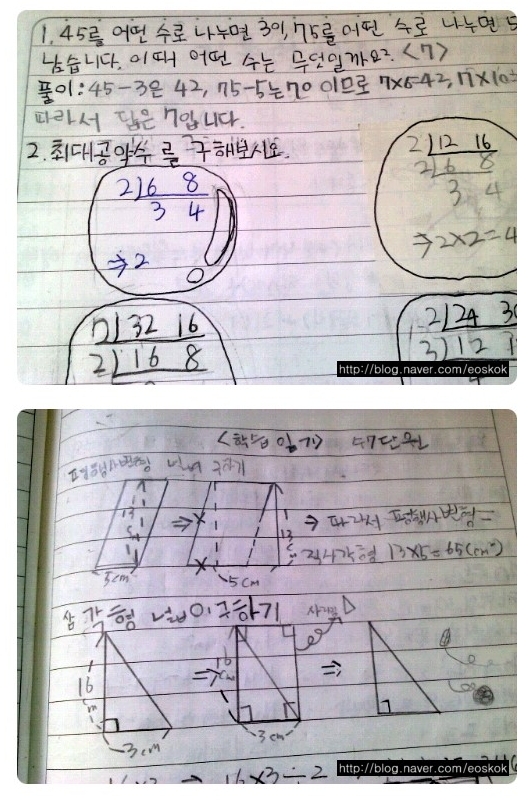 1. 45를 어떤 수로 나누면 3이, 75를 어떤 수로 나누면 5
남습니다. 이때 어떤 수는 무엇일까요? <7>
풀이: 45-3은 42, 75-5는 70 이므로 7×6=42,
따라서 답은 7입니다.
2. 최대공약수 를 구해보시오.
2)6 8
3 4
⇒2
2)12 16
2)6 8
3 4
⇒2×2=4
2)32 16
2)16 8
2)24
3)12
http://blog.naver.com/eoskok
<학습 일기> 단원
평행사변형 넓이 구하기
⇒ 따라서 평행사변형=
직사각형 13×5=65(cm²)
13cm
5cm
5cm
삼각형 넓이 구하기
16cm
3cm
⇒
16cm
3cm
⇒
16×3 ⇒ 16×3÷2
http://blog.naver.com/eoskok